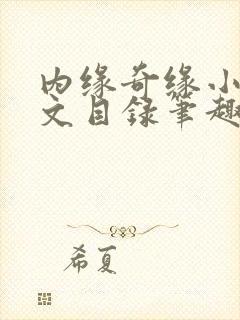 内缘奇缘小
文目录笔趣
希夏